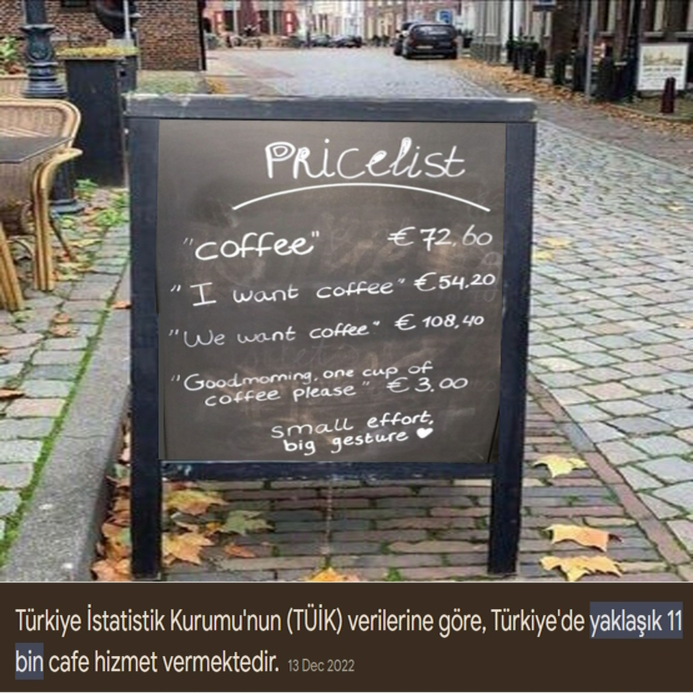 PRicelist
"coffee" € 72,60
"I want coffee" €54,20
"We want coffee" € 108,40
"Goodmorning, one cup of
coffee please" € 3,00
small effort,
big gesture ♥
Türkiye İstatistik Kurumu'nun (TÜİK) verilerine göre, Türkiye'de yaklaşık 11
bin cafe hizmet vermektedir. 13 Dec 2022